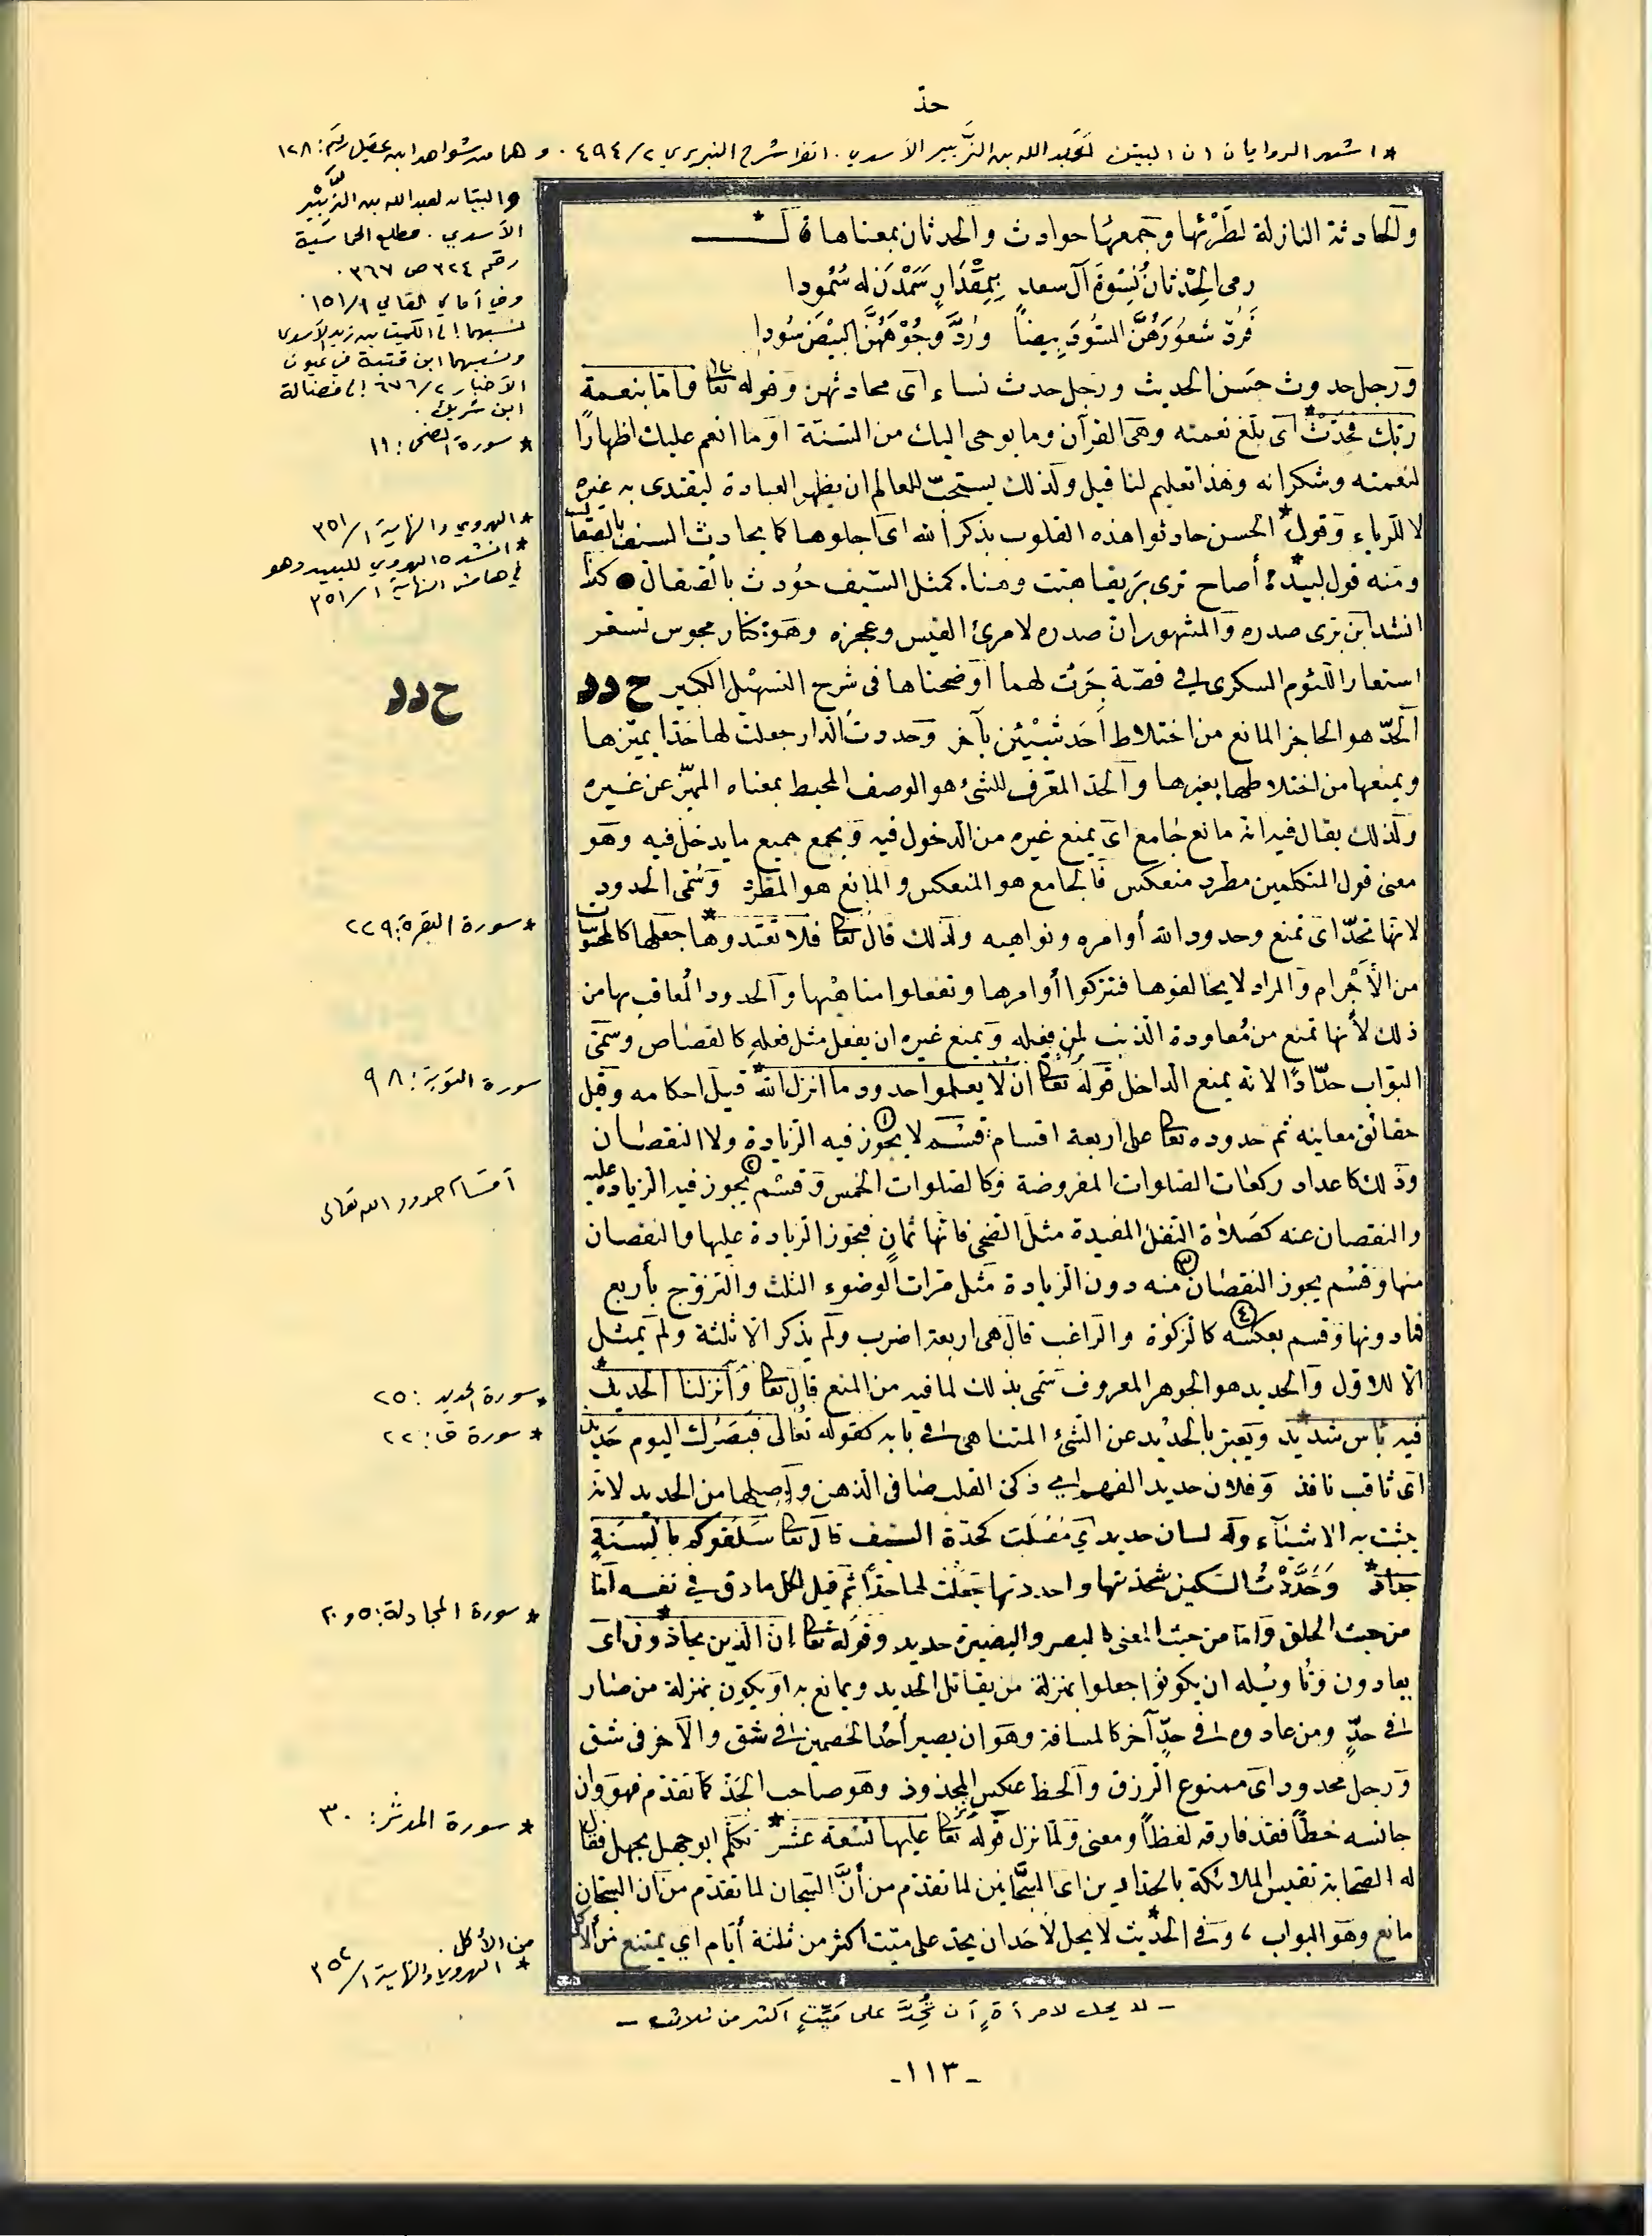 حدّ
* اشهر الروايات ان البيتين لعبد الله بن الزَّبير الأسدي. انظر شرح التبريزي ٤٩٤/٢. وهما من شواهد ابن عقيل رقم: ١٢٨
والحادثة النازلة لطَرْئها وجمعها حوادث والحدثان بمعناها قال *
رمى الحِدْثانُ نِسْوَةَ آل سعد بِمِقْدَارٍ سَمَدْنَ له سُمُودا
فَرَدَّ شُعُورَهُنَّ السُّودَ بِيضاً وَرَدَّ وُجُوْهَهُنَّ البِيْضَ سُودا
ورجل حدوث حَسَن الحديث ورجل حدث نساء أى محادثهن وقوله تعا واما بنعمة
ربّك فحدّث * أى بلّغ نعمته وهى القرآن وما يوحى اليك من السّنّة او ما انعم عليك اظهارًا
لنعمته وشكرانه وهذا تعليم لنا قيل ولذلك يستحبّ للعالم ان يظهر العبادة ليقتدى به غيره
لا للرياء وقول * الحسن حادثوا هذه القلوب بذكر الله اى اجلوها كما يحادث السيف بالصقال
ومنه قول لبيد * أصاح ترى بَرِيقا هبّت وهنا. كمثل السّيف حُودث بالصّقال ● كذا
انشد ابن برّى صدره والمشهور ان صدره لامرئ القيس وعجزه وهو: كنار مجوس تستعر
استعارا للتوم اليشكرى فى قصّة جَرَتْ لهما اوضحناها فى شرح التسهيل الكبير ح د د
الحدّ هو الحاجز المانع من اختلاط أحد شيئين بآخر وحددت الدار جعلت لها حدّا يميّزها
ويمنعها من اختلاطها بغيرها والحدّ المعرّف للشىء هو الوصف المحيط بمعناه المميّز عن غيره
ولذلك يقال فيه انه مانع جامع اى يمنع غيره من الدخول فيه ويجمع جميع ما يدخل فيه وهو
معنى قول المتكلمين مطرد منعكس فالجامع هو المنعكس والمانع هو المطّرد وسُمّى الحدود
لانها تحدّ اى تمنع وحدود الله أوامره ونواهيه ولذلك قال تعا فلا تعتدوها * جعلها كالمحسوسات
من الأجْرام والمراد لا يخالفوها فتتركوا أوامرها وتفعلوا مناهيها والحدود المُعاقب بها من
ذلك لأنها تمنع من مُعاودة الذنب لمن فعله ويمنع غيره ان يفعل مثل فعله كالقصاص وسمّى
البوّاب حدّادًا لانه يمنع الداخل قوله تعا ان لا يعلموا حدود ما انزل الله * قيل احكامه وقيل
حقائق معانيه ثم حدوده تعا على اربعة اقسام: قسم ① لا يجوز فيه الزيادة ولا النقصان
وذلك كاعداد ركعات الصلوات المفروضة وكالصلوات الخمس وقسم ② يجوز فيه الزيادة عليه
والنقصان عنه كصلاة النّفل المقيدة مثل الضحى فانها ثمانٍ فيجوز الزيادة عليها والنقصان
منها وقسم ③ يجوز النقصان منه دون الزيادة مثل مرّات الوضوء الثلث والتزوّج بأربع
فما دونها وقسم ④ بعكسه كالزكوة والراغب قال هى اربعة اضرب ولم يذكر الّا ثلثة ولم يمثل
الّا للاوّل والحديد هو الجوهر المعروف سمّى بذلك لما فيه من المنع قال تعا وأنزلنا الحديد *
فيه بأس شديد ويعبّر بالحديد عن الشئ المتناهى فى بابه كقوله تعالى فبصرك اليوم حديد *
اى ثاقب نافذ وفلان حديد الفهم اى ذكىّ القلب صافى الذهن واصلها من الحديد لانه
يثبت به الاشيآء وله لسان حديد أي مُصْلَت كحدّة السيف قال تعا سلقوكم بالسنة
حداد * وحَدَّدْتُ السكين شحذتها واحددتها جعلت لها حدّاً ثم قيل لكل ما دق في نفسه امّا
من حيث الخلق وامّا من حيث المعنى كالبصر والبصيرة حديد وقوله تعا إن الذين يحادّون * اى
يعادون وتأويله ان يكونوا جعلوا بمنزلة من يقاتل الحديد ويمانع به او يكون بمنزلة من صار
فى حدٍّ ومن عادوه فى حدٍّ آخر كالمسافة وهو ان يصير أحد الخصمين فى شق والآخر فى شق
ورجل محدود اى ممنوع الرزق والحظ عكس المجدود وهو صاحب الجَدّ كما تقدّم فهو وان
جانسه خطّاً فقد فارقه لفظاً ومعنى ولمّا نزل قوله تعا عليها تسعة عشر * تكلم ابو جهل بجهل فقال
له الصحابة تقيس الملائكة بالحدّادين اى السجّانين لما تقدّم من أنّ السجان لما تقدّم من أن السجّان
مانع وهو البواب، وفى الحديث * لا يحل لأحد ان يحدّ على ميّت اكثر من ثلثة أيّام اي يمتنع من ألأكل
- لا يحل لامرأةٍ أن تُحِدَّ على مَيِّتٍ أكثر من ثلاث -
- ١١٣ -
والبيتان لعبد الله بن الزَّبِيْر
الأسدي. مطلع الحماسية
رقم ٣٢٤ ص ٣٦٧.
وفي أمالي القالي ١٥١/١
نسبهما إلى الكميت بن زيد الأسدي
ونسبهما ابن قتيبة في عيون
الأخبار ٦٧٦/٢ إلى فضالة
ابن شريك.
* سورة الضحى: ١١
* الهروي والنهاية ٣٥١/١
* أنشده الهروي للبيد وهو
في هامش النهاية ٣٥١/١
ح د د
* سورة البقرة: ٢٢٩
سورة التوبة: ٩٨
أقسام حدود الله تعالى
* سورة الحديد: ٢٥
* سورة ق: ٢٢
* سورة المجادلة: ٥ و ٢٠
* سورة المدثر: ٣٠
من الأكل.
* الهروي والنهاية ٣٥٢/١